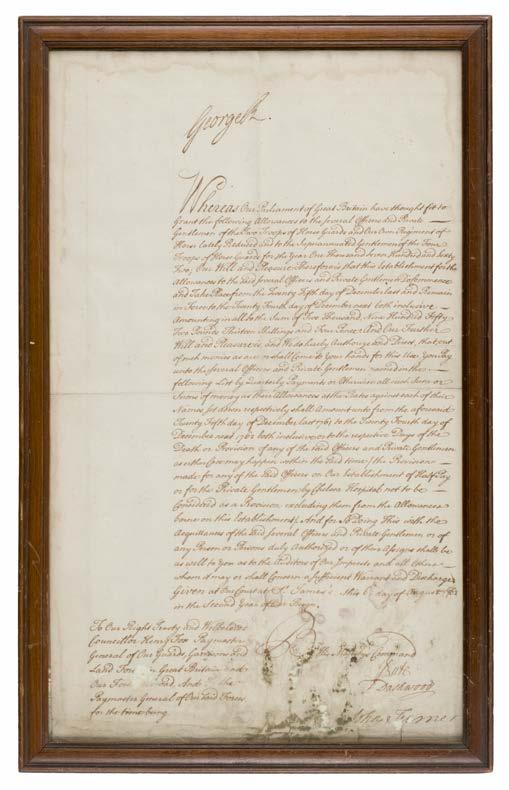 George R.
Whereas Our Parliament of Great Britain have thought fit to
Grant the following Allowances to the several Officers and Private
Gentlemen of the Two Troops of Horse Guards and Our Own Regiment of
Horse lately Reduced and to the Superannuated Gentlemen of the Four
Troops of Horse Guards for the Year One thousand Seven Hundred and Sixty
Two; Our Will and Pleasure Therefore is that this Establishment for the
Allowances to the said several Officers and Private Gentlemen do Commence
and Take Place from the Twenty Fifth day of December last and Remain
in Force to the Twenty Fourth day of December next both inclusive
Amounting in all to the Sum of Two Thousand, Nine Hundred Fifty
Two Pounds Thirteen Shillings and Four Pence And Our Further
Will and Pleasure is, and We do hereby Authorize and Direct, that out
of such monies as are or shall Come to Your hands for this Use You Pay
unto the several Officers and Private Gentlemen named in the
following List by Quarterly Payments or Otherwise all such Sum or
Sums of money as their Allowances at the Rates against each of their
Names set down respectively shall Amount unto from the aforesaid
Twenty Fifth day of December last 1761 to the Twenty Fourth day of
December next 1762 both inclusive or to the respective Days of the
Death or Provision of any of the said Officers and Private Gentlemen
as either Case may happen within the said time; the Provision
made for any of the said Officers on Our Establishment of Half Pay
or for the Private Gentlemen by Chelsea Hospital not to be
Considered as a Provision excluding them from the Allowance
borne on this Establishment; And for so doing This with the
Acquittances of the said several Officers and Private Gentlemen or of
any Person or Persons duly Authorized or of their Assigns shall be
as well to You as to the Auditors of Our Imprests and all Others
whom it may or shall Concern a sufficient Warrant and Discharge
Given at Our Court at St. James's this 6 day of August 1762
in the Second Year of Our Reign.
To Our Right Trusty and Welbeloved
Councillor Henry Fox Paymaster
General of Our Guards Garrisons and
Land Forces in Great Britain and
Our
Paymaster General of Our Land Forces
for the time being
By His Command
Bute
F Dashwood
Turner